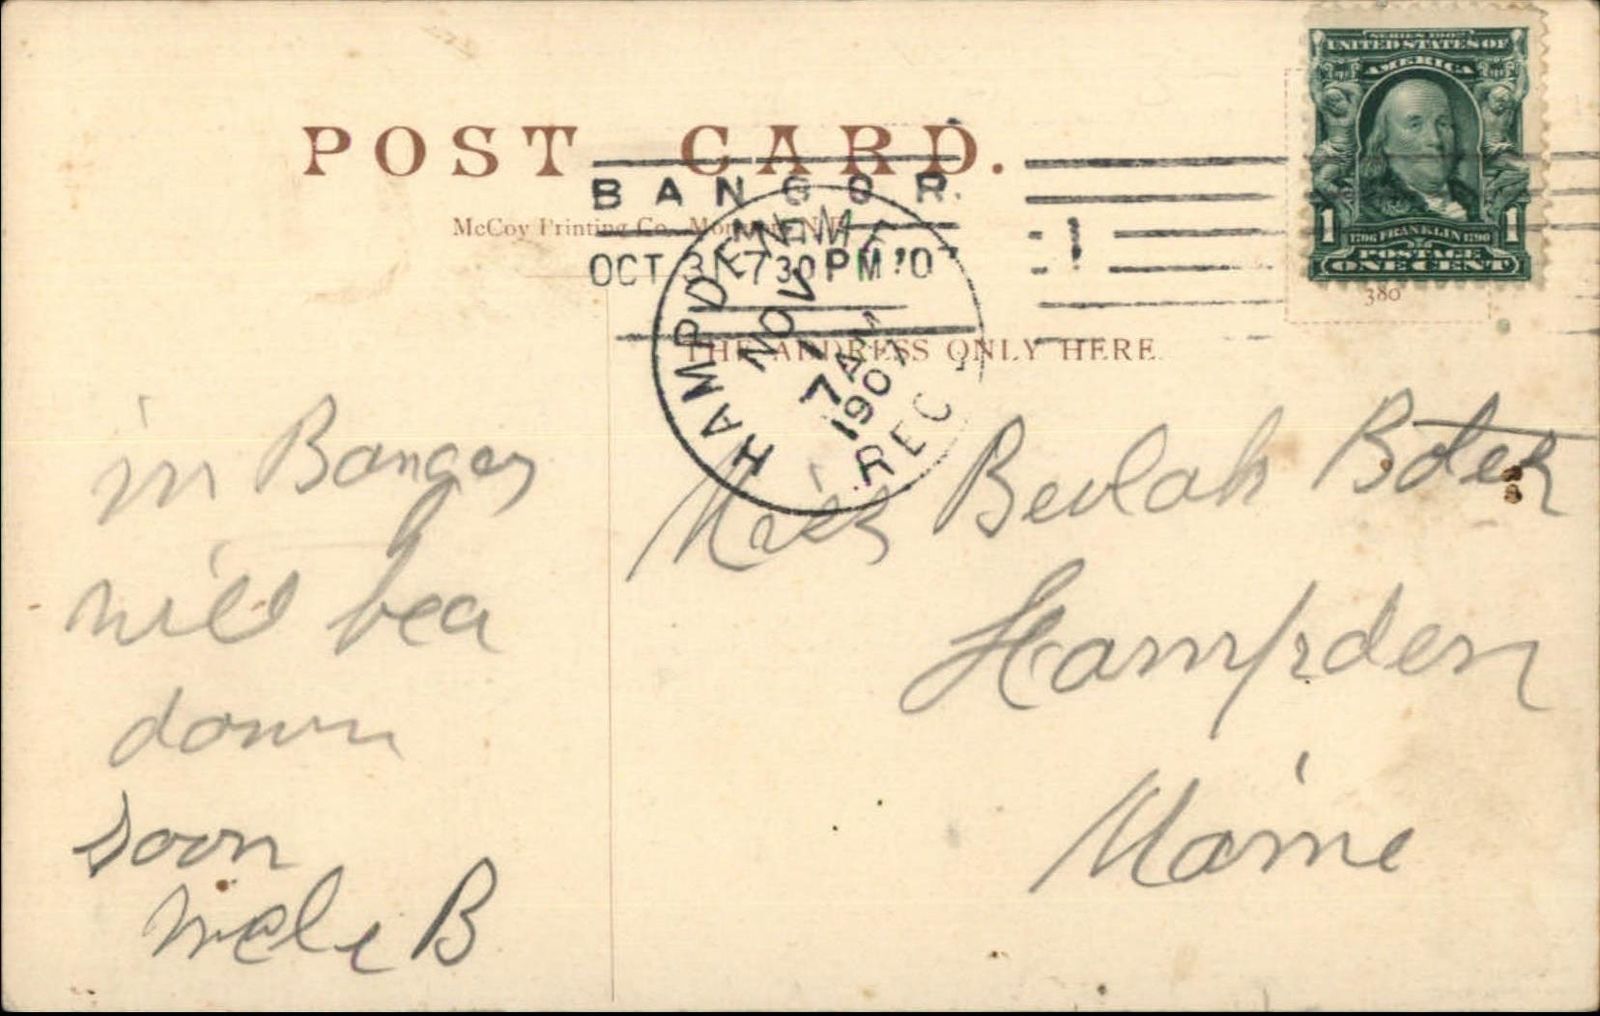 SERIES 1902
UNITED STATES OF
AMERICA
1 1
1706 FRANKLIN 1790
POSTAGE
ONE CENT
380
POST CARD.
BANGOR
McCoy Printing Co.
OCT 31 7 30 PM '07
HAMPDEN ME
NOV 1
7 AM
1907
REC'D
THE ADDRESS ONLY HERE
in Bangor
will bea
down
soon
B
Miss Beulah
Hampden
Maine